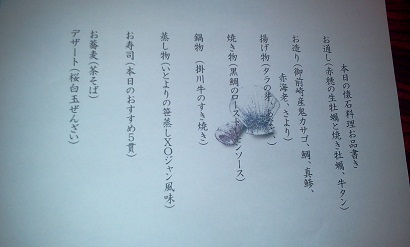 本日の懐石料理お品書き
お通し(赤穂の生牡蠣と焼き牡蠣、牛タン)
お造り(御前崎産鬼カサゴ、鯛、真鯵、
赤海老、さより)
揚げ物(タラの芽
焼き物(黒鯛のロースト ソース)
鍋物 (掛川牛のすき焼き)
蒸し物(いとよりの笹蒸しXOジャン風味)
お寿司(本日のおすすめ5貫)
お蕎麦(茶そば)
デザート(桜白玉ぜんざい)